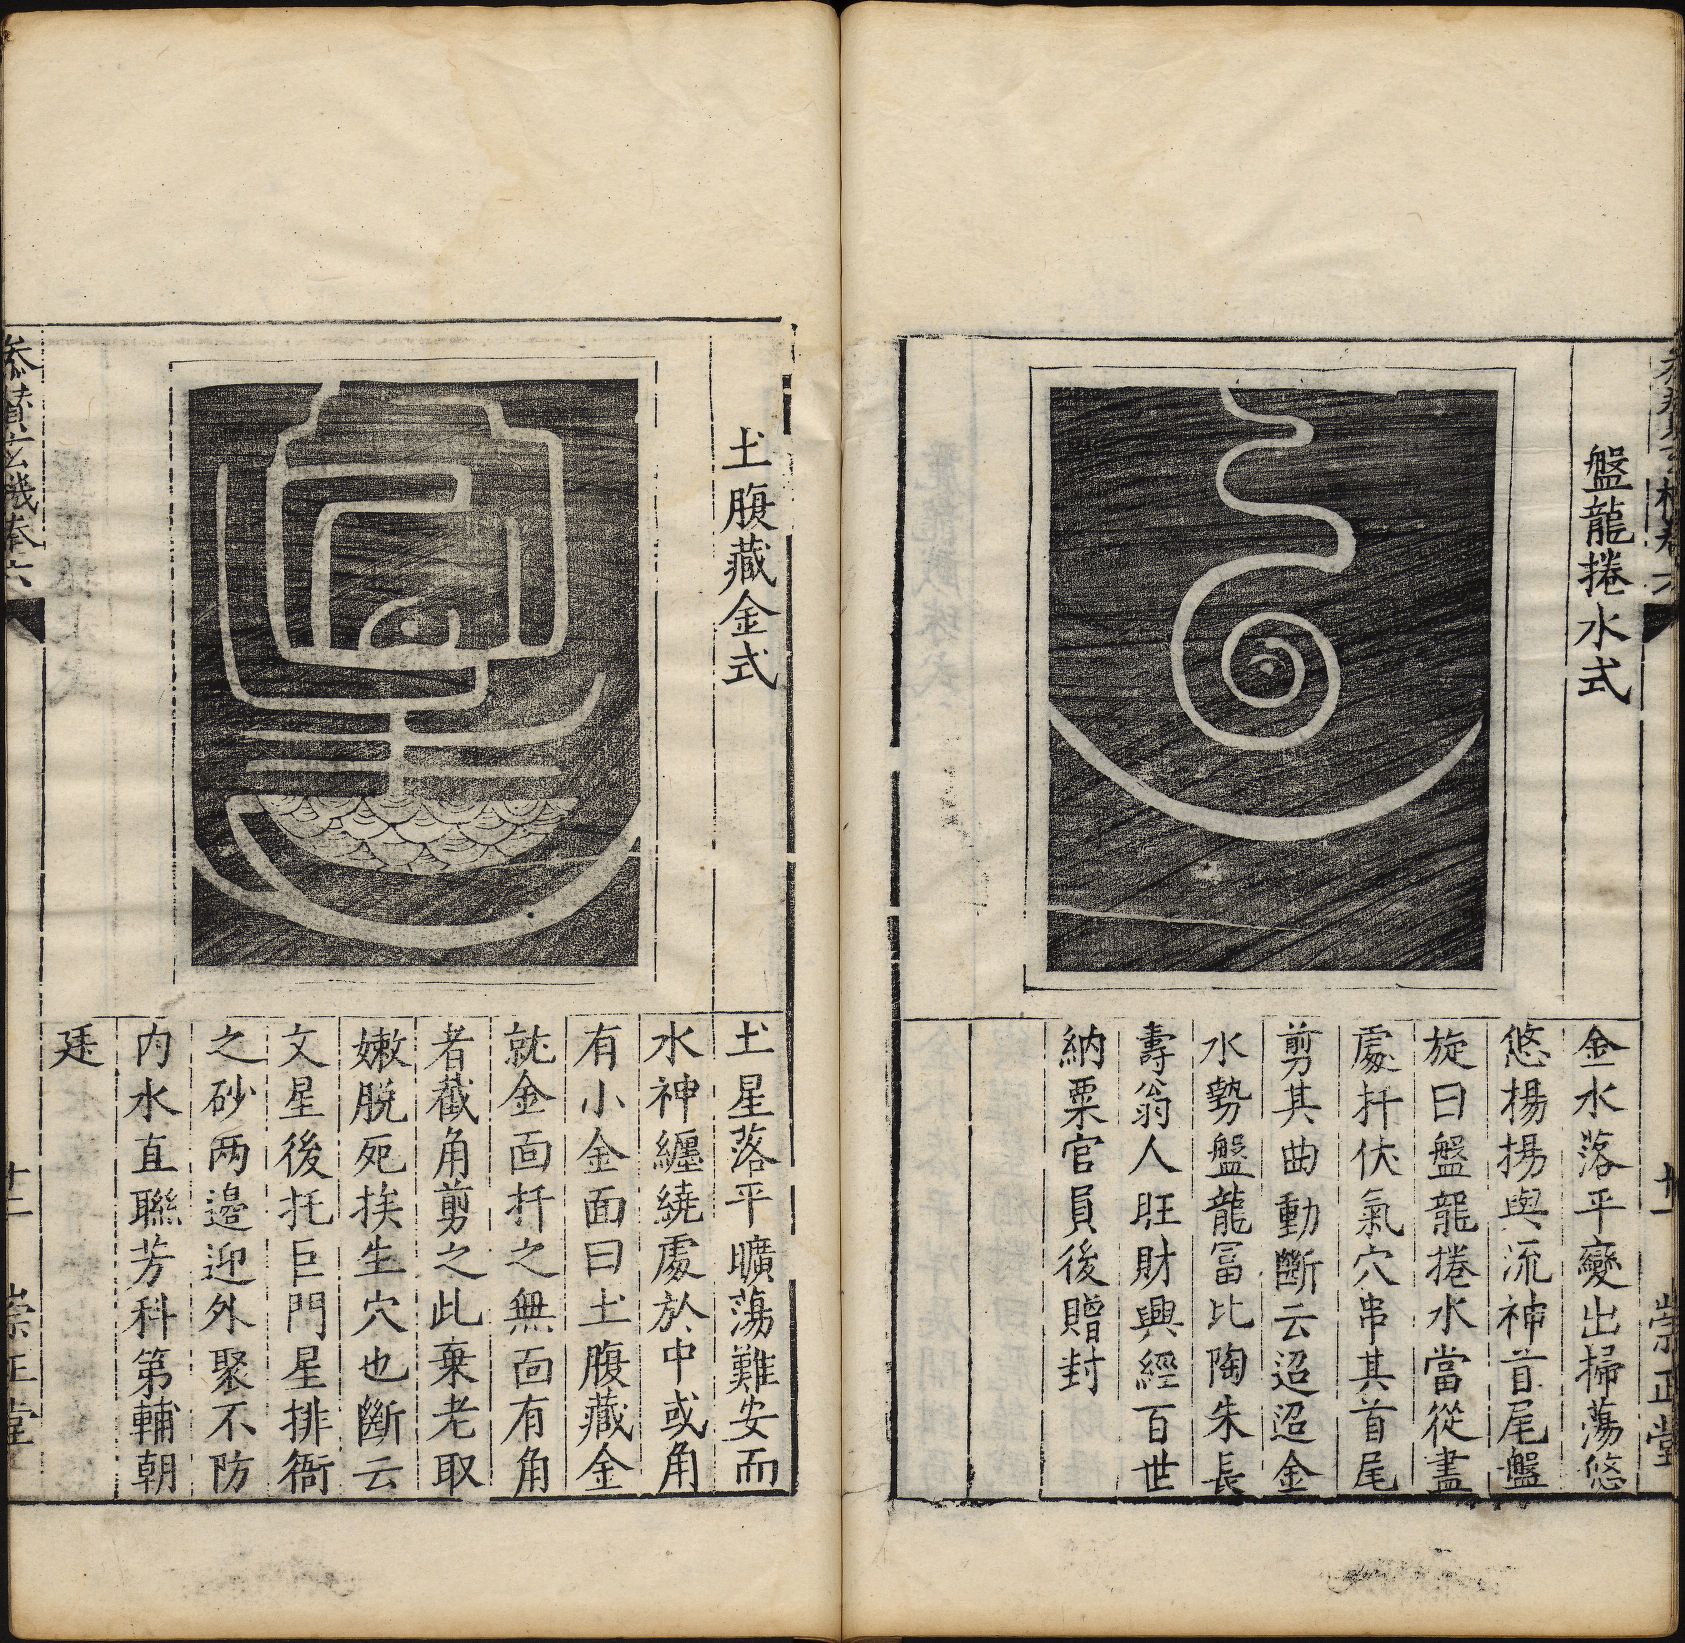 盤龍捲水式
金水落平變出掃蕩悠
悠揚揚與流神首尾盤
旋曰盤龍捲水當從盡
處扦伏氣穴串其首尾
剪其曲動斷云迢迢金
水勢盤龍冨比陶朱長
壽翁人旺財興經百世
納粟官員後贈封
廿一
崇正堂
土腹藏金式
土星落平曠蕩難安而
水神纏繞處於中或角
有小金面曰土腹藏金
就金面扦之無面有角
者截角剪之此棄老取
嫩脱死挨生穴也斷云
文星後托巨門星排衙
之砂两邉迎外聚不防
内水直聯芳科第輔朝
廷
叅賛玄機卷六
廿二
崇正堂